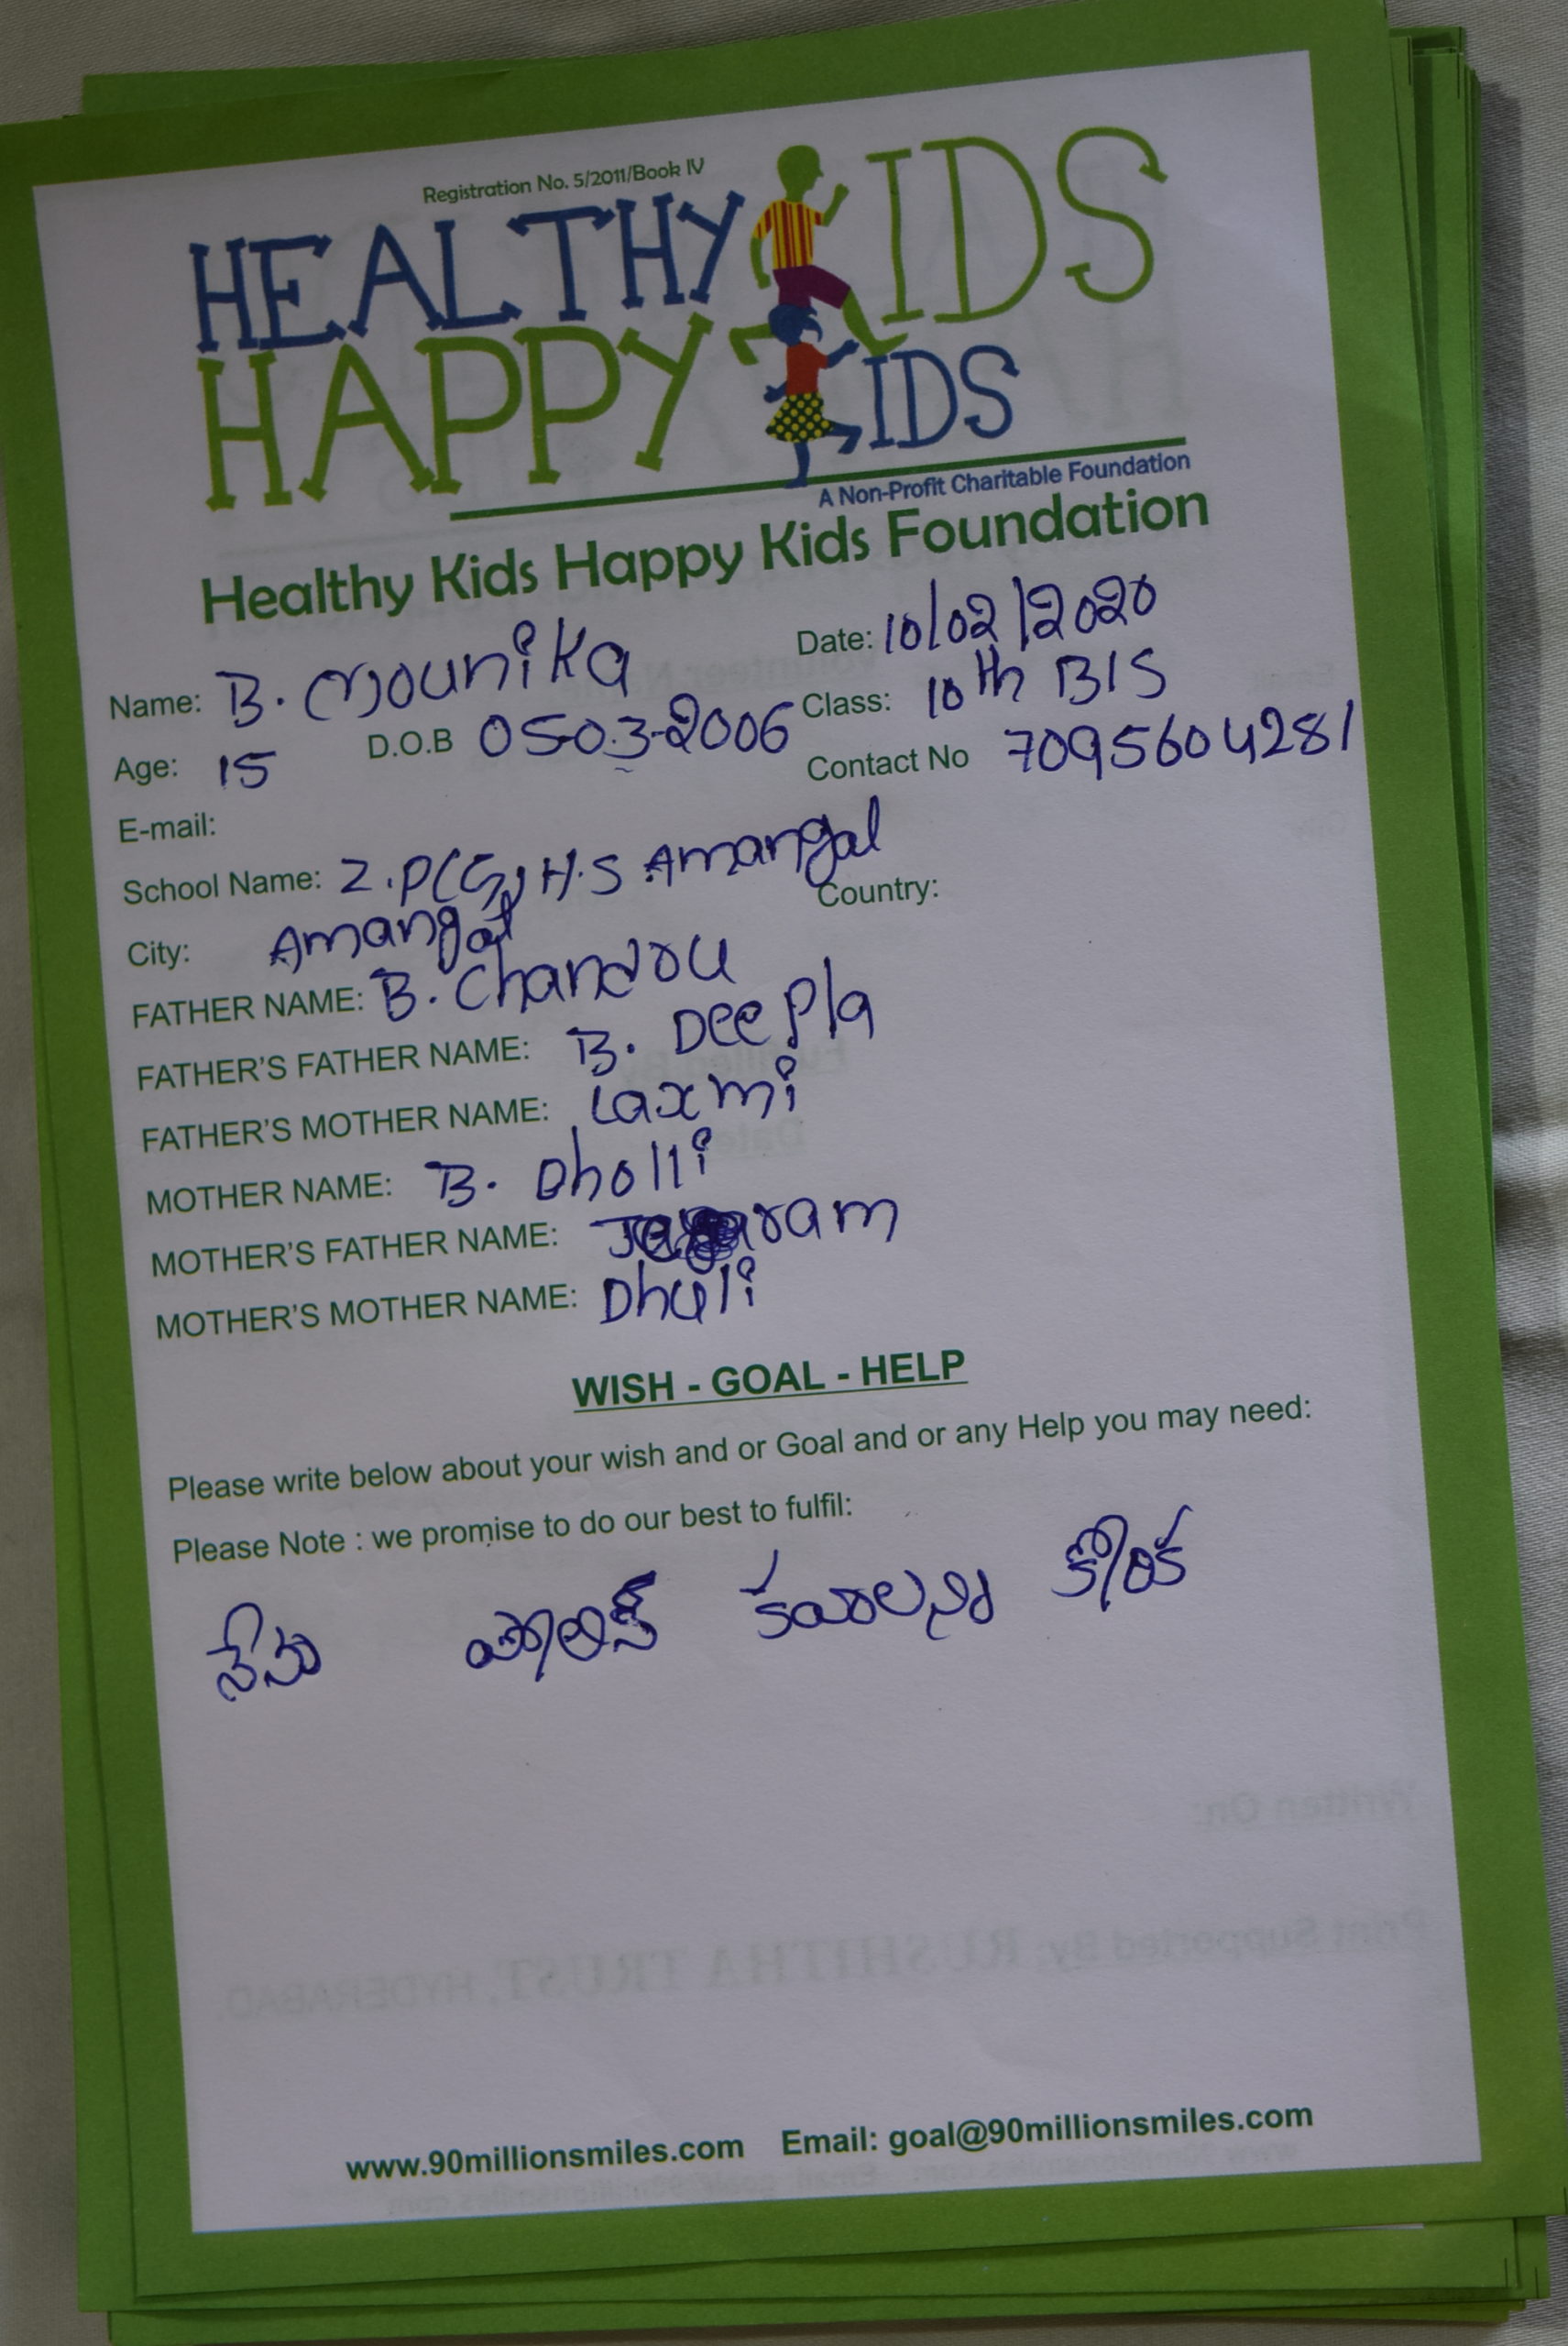 Registration No. 5/2011/Book IV
HEALTHY KIDS
HAPPY KIDS
A Non-Profit Charitable Foundation
Healthy Kids Happy Kids Foundation
Name: B. Mounika Date: 10/02/2020
Age: 15 D.O.B 05-03-2006 Class: 10th B/S
Contact No 7095604281
E-mail:
School Name: Z.P(G)H.S Amangal
City: Amangal Country:
FATHER NAME: B. Chandru
FATHER'S FATHER NAME: B. Deepla
FATHER'S MOTHER NAME: Laxmi
MOTHER NAME: B. Dholli
MOTHER'S FATHER NAME:
MOTHER'S MOTHER NAME: Dhuli
WISH - GOAL - HELP
Please write below about your wish and or Goal and or any Help you may need:
Please Note : we promise to do our best to fulfil:
నేను పోలిస్ కావాలని కోరిక
Written On:
Print Supported By: RUSHITHA TRUST, HYDERABAD.
www.90millionsmiles.com Email: goal@90millionsmiles.com